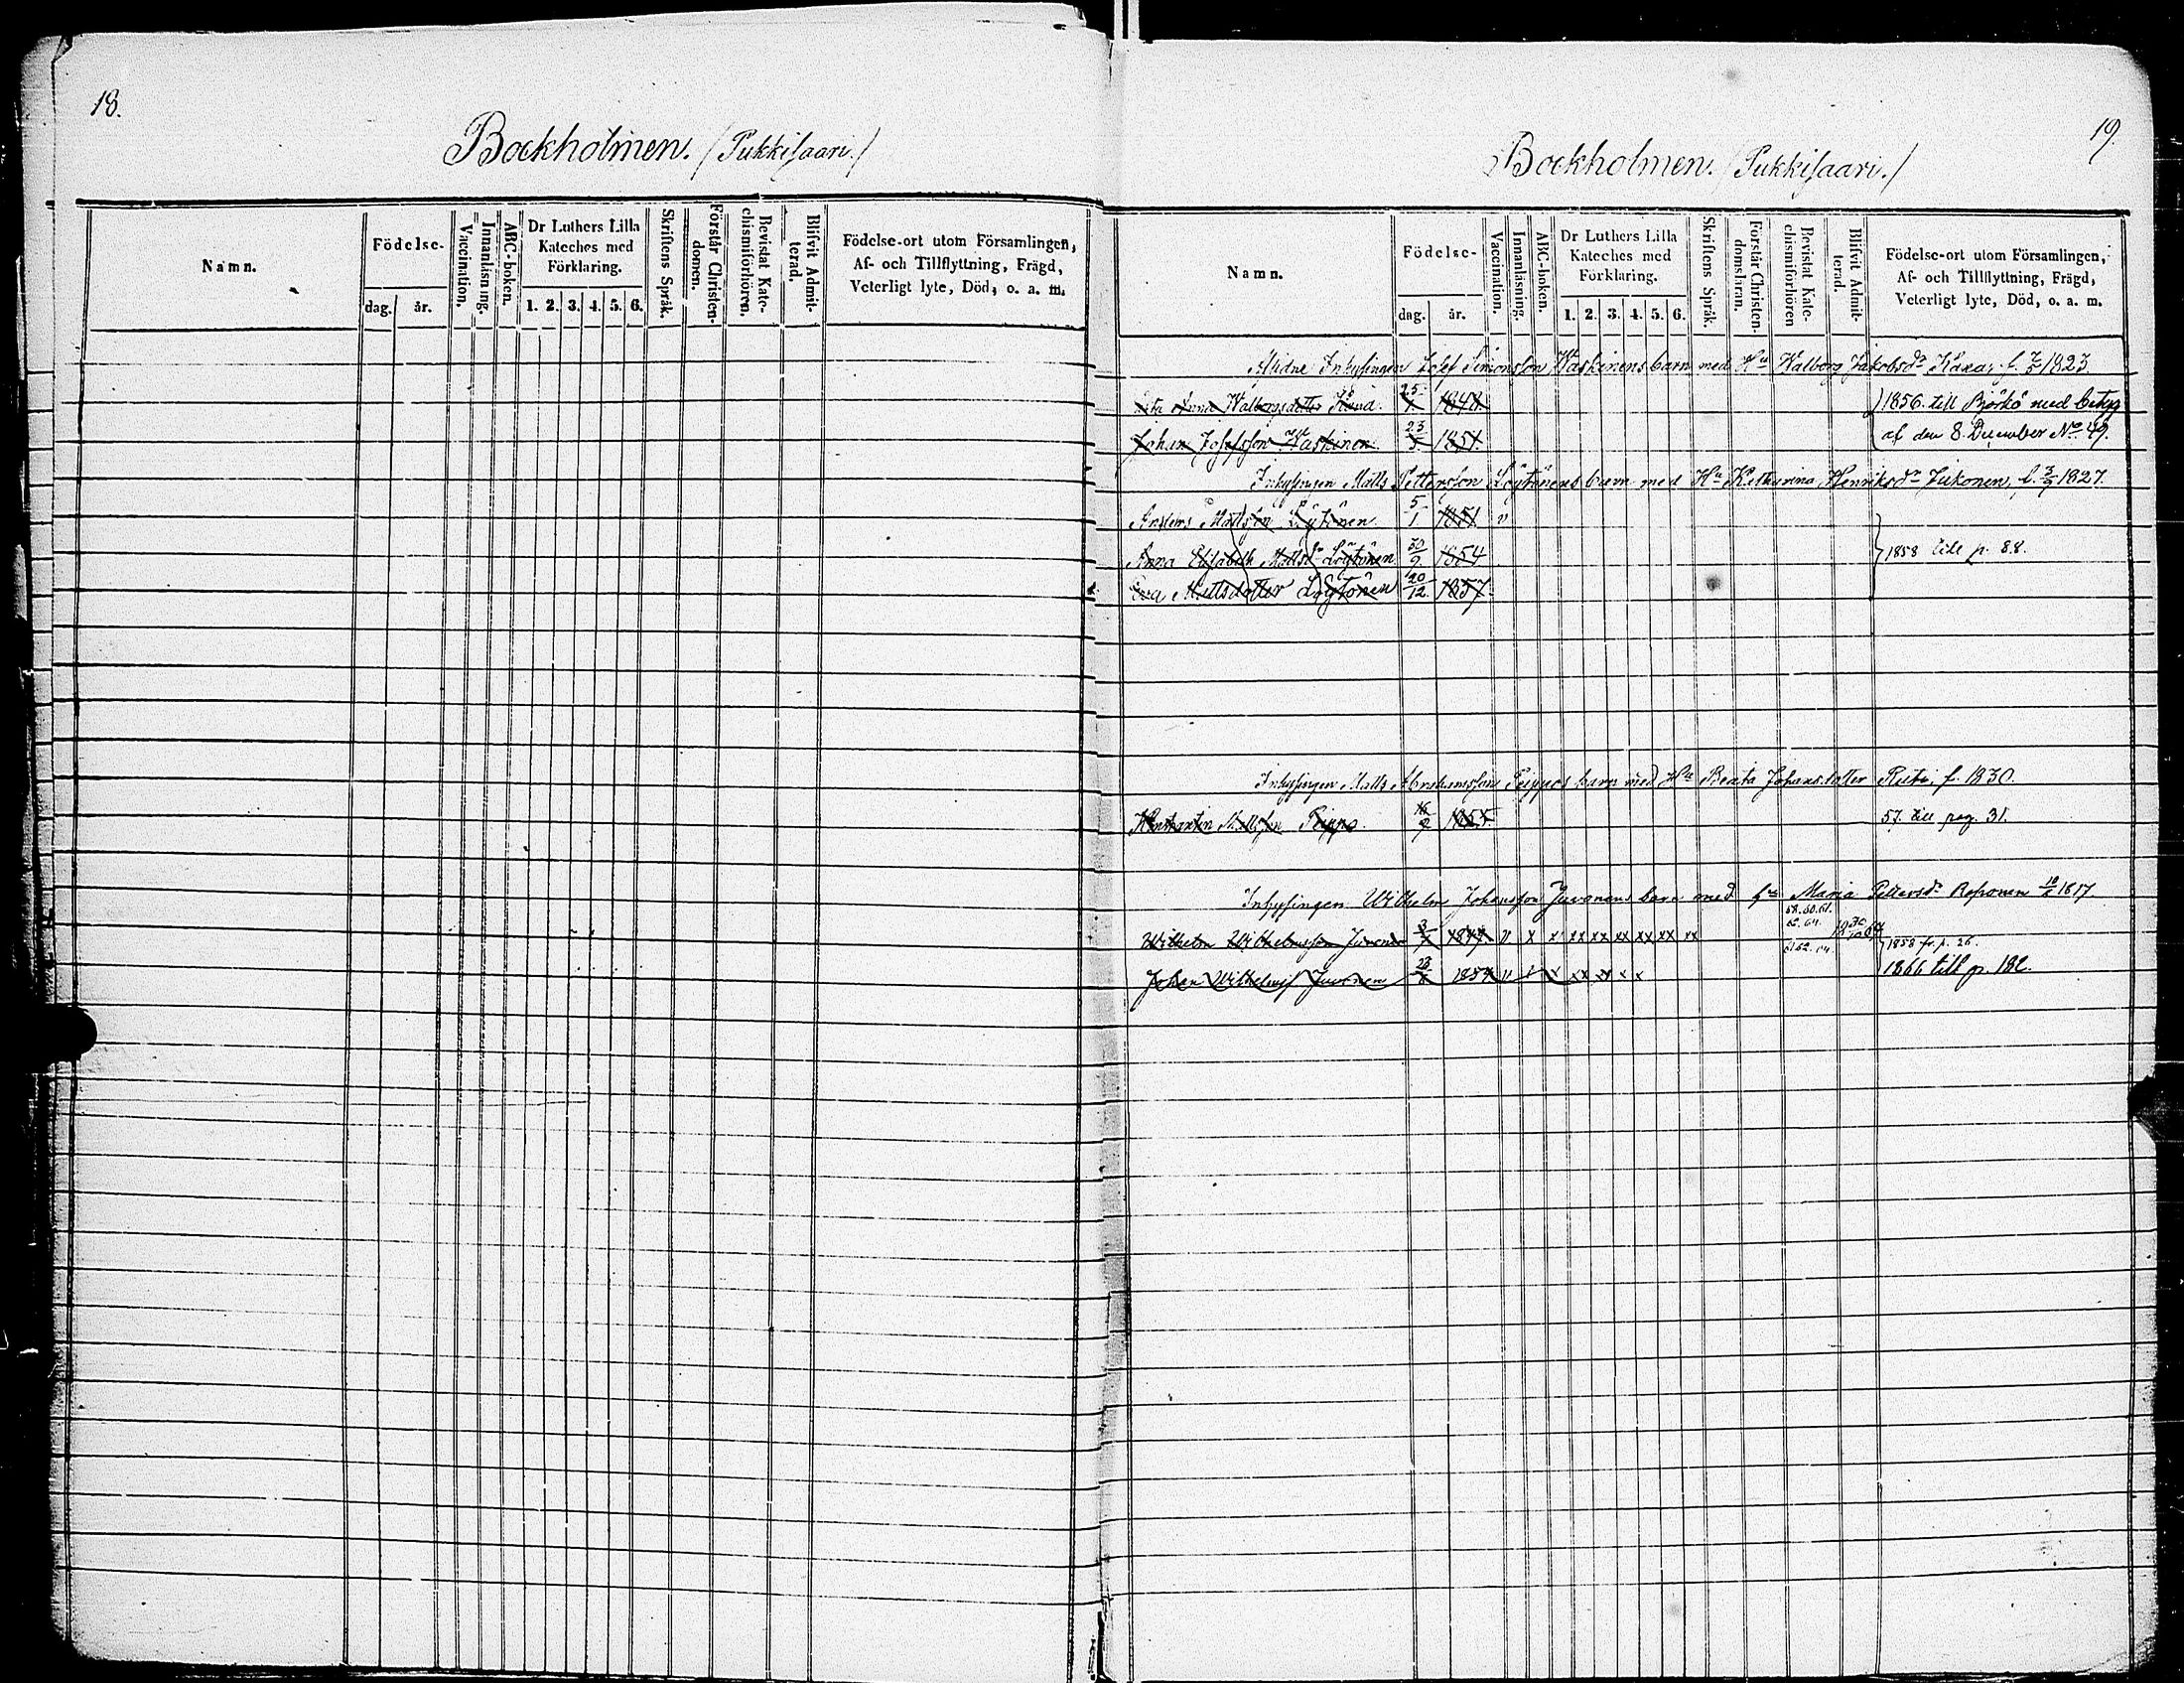 18.
Bockholmen. (Pukkisaari.)
Namn.
Födelse-
dag. år.
Vaccination.
Innanläsning.
ABC-boken.
Dr Luthers Lilla
Kateches med
Förklaring.
1. 2. 3. 4. 5. 6.
Skriftens Språk.
Förstår Christen-
domen.
Bevistat Kate-
chismiförhören.
Blifvit Admit-
terad.
Födelse-ort utom Församlingen,
Af- och Tillflyttning, Frägd,
Veterligt lyte, Död, o. a. m.
19.
Bockholmen. (Pukkisaari.)
Namn.
Födelse-
dag. år.
Vaccination.
Innanläsning.
ABC-boken.
Dr Luthers Lilla
Kateches med
Förklaring.
1. 2. 3. 4. 5. 6.
Skriftens Språk.
Förstår Christen-
domsläran.
Bevistat Kate-
chismiförhören
Blifvit Admit-
terad.
Födelse-ort utom Församlingen,
Af- och Tillflyttning, Frägd,
Veterligt lyte, Död, o. a. m.
Aflidne Inhysingen Josef Simonsson Waskinens barn med Hu Walborg Jakobsdr f. 1823.
Anna Walborgsdotter 1856. till Björkö med betyg
Johan Josefsson Waskinen. 23/5 1851. af den 8. December No 49.
Inhysingen Matts Pettersson Löytönens barn med Hu Katharina Henriksdr Jukonen, f. 1827.
Anders Mattsson Löytönen. 5/1 1851 v
Anna Elisabeth Mattsdr Löytönen 30/9 1854 1858 till p. 88.
Eva Mattsdotter Löytönen 20/12 1857.
Inhysingen Matts Abrahamsson Peippos barn med Hu Beata Johansdotter f. 1830.
Konstantin Mattsson Peippo. 1855. 57. till pag. 31.
Inhysingen Wilhelm Johansson Juvonens barn med Maria Pettersdr 1817.
58.60.61.
62.64.
Wilhelm Wilhelmsson Juvonen 1847 v x x xx xx xx xx xx xx 1858 fr. p. 26.
61.62.64.
Johan Wilhelmss Juvonen 1854 v x x xx x x x x 1866 till p. 182.